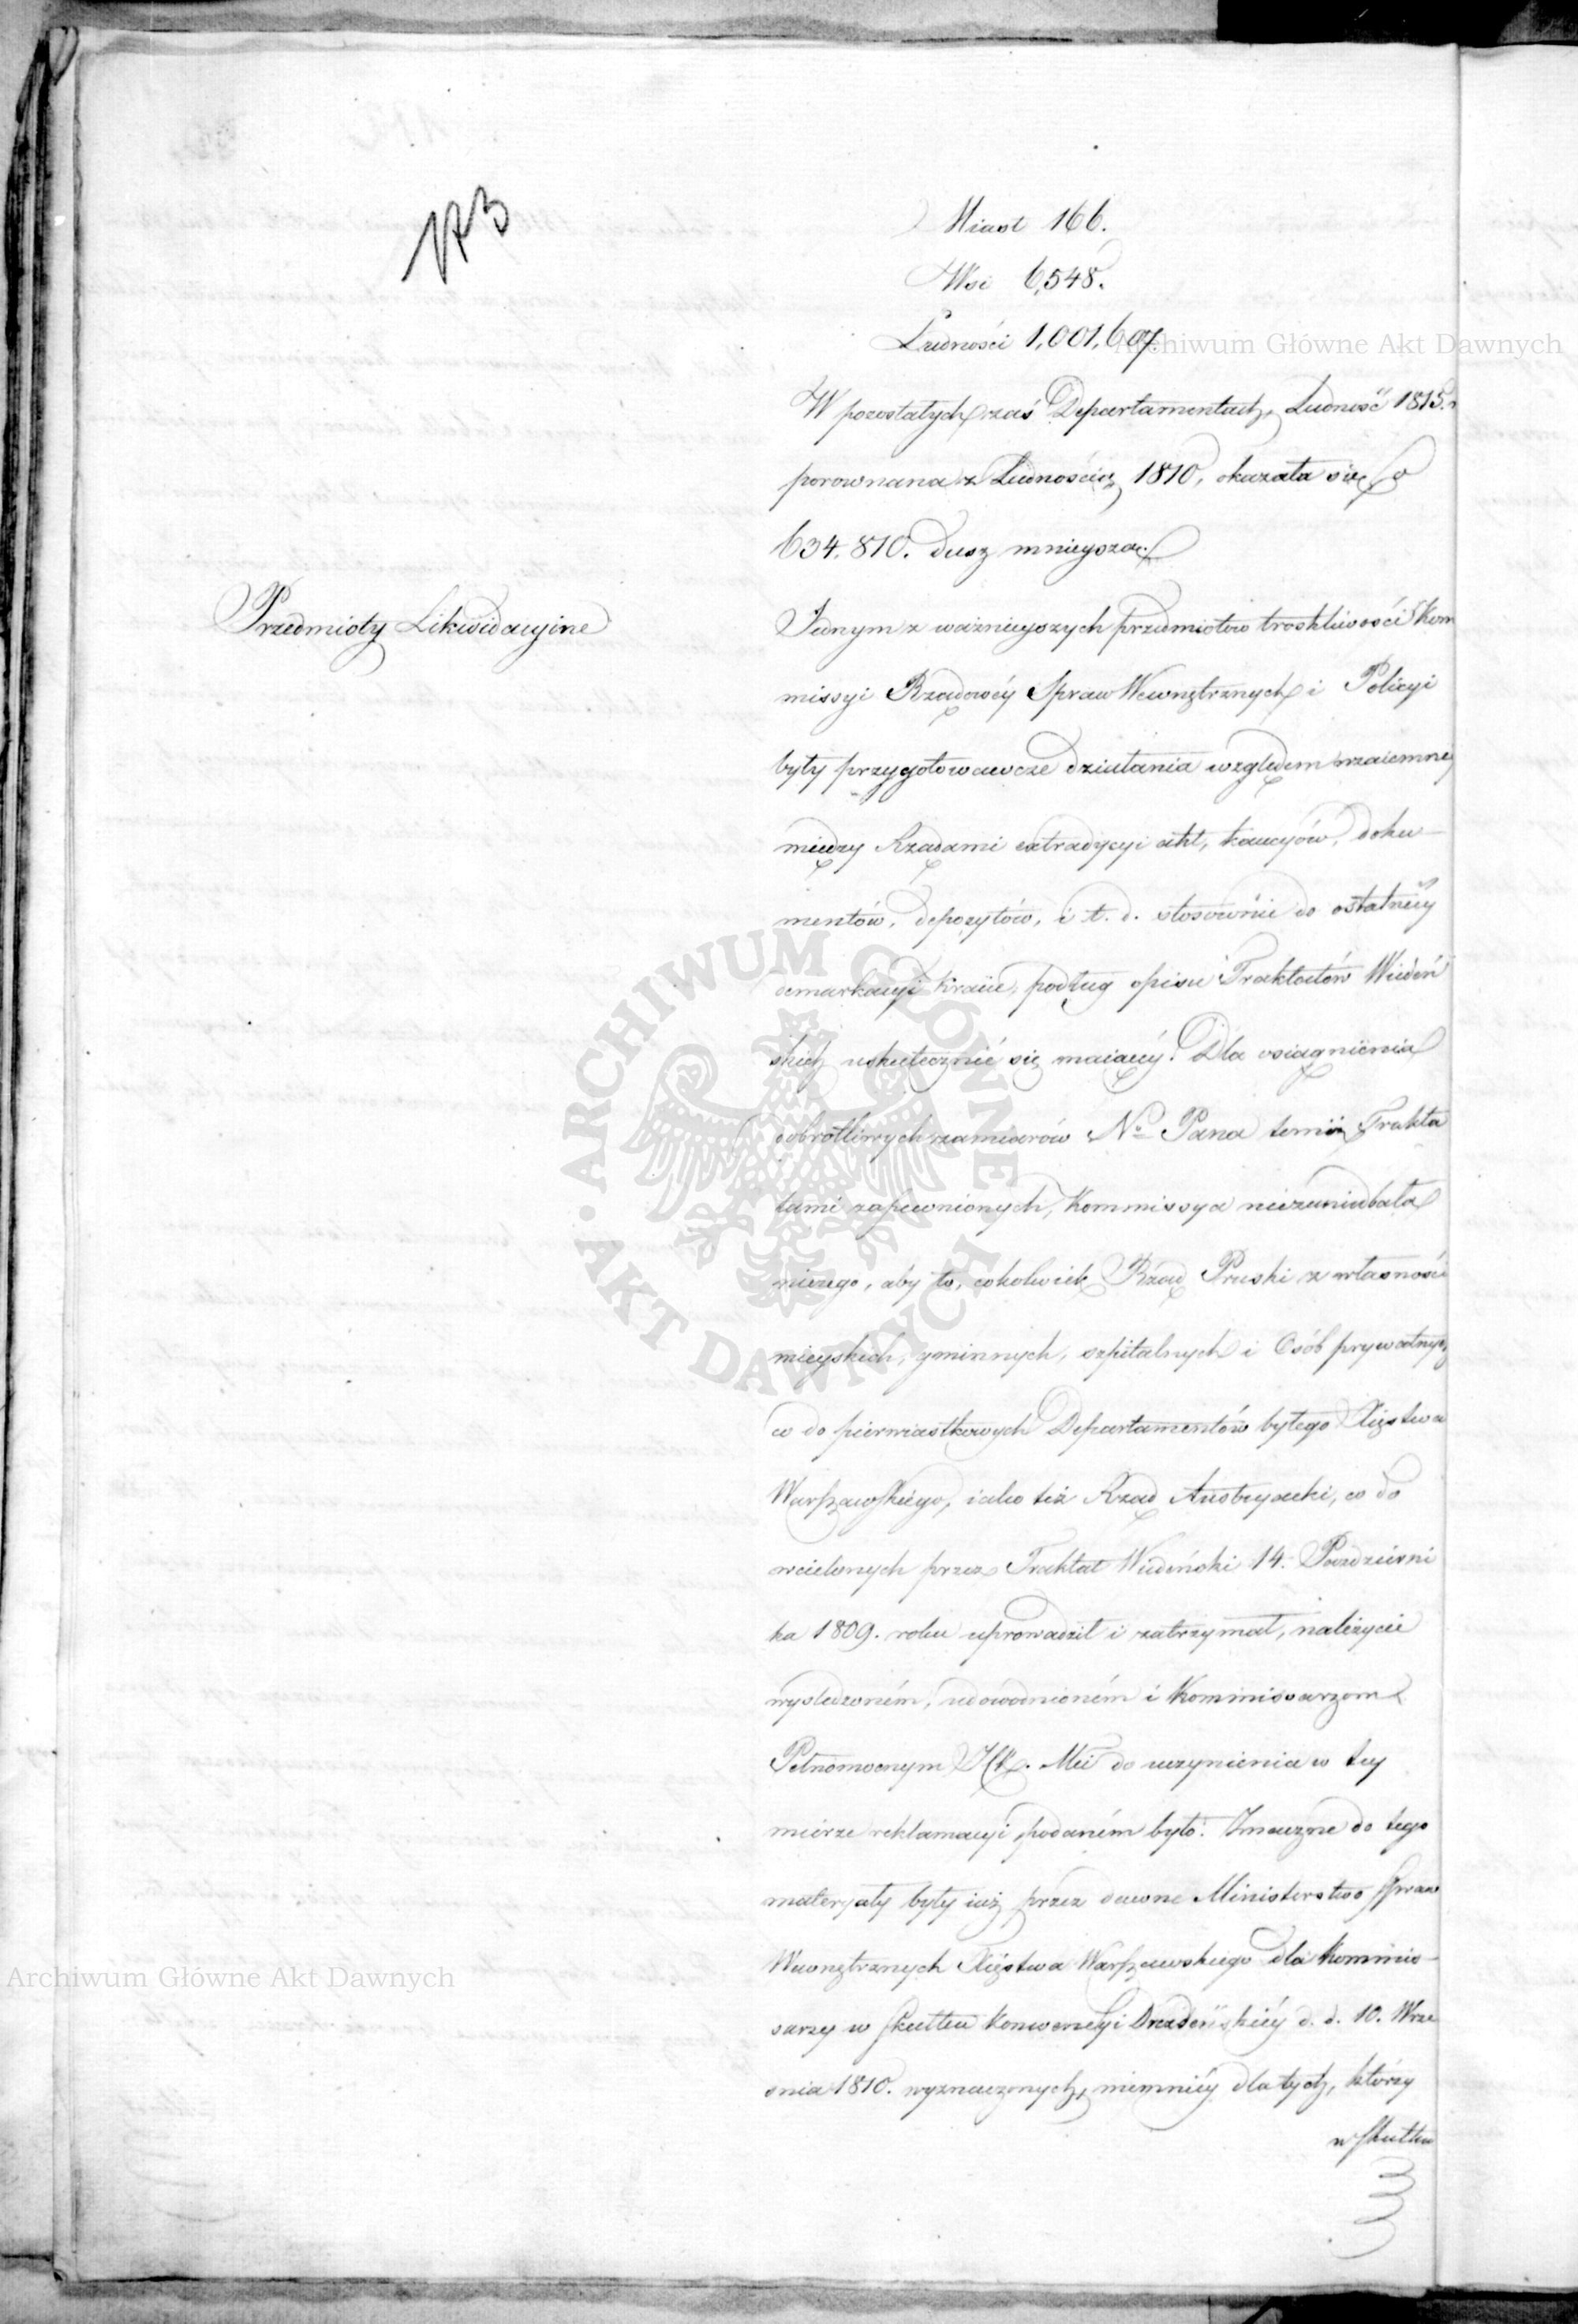 173
Miast 166.
Wsi 6,548.
Ludności 1,001,607
W pozostałych zaś Departamentach, Ludność 1815. r
porownana z Ludnością 1810, okazała się o
634,810. dusz mnieyszą.
Przedmioty Likwidacyine
Jednym z ważnieyszych przedmiotów troskliwości Kom
missyi Rządowéy Spraw Wewnętrznych i Policyi
były przygotowawcze działania względem wzaiemney
między Rządami extradycyi akt, kaucyów, doku-
mentów, depozytów, i t. d. stosownie do ostatniey
demarkacyi kraiu, podług opisu Traktatów Wiedeń
skich uskutecznić się maiącéy. Dla osiągnienia
dobrotliwych zamiarów No Pana temiż Trakta
tami zapewnionych, Kommissya niezaniedbała
niczego, aby to, cokolwiek Rząd Pruski z własności
mieyskich, gminnych, szpitalnych i Osób prywatnych
co do pierwiastkowych Departamentów byłego Xięstwa
Warszawskiego, iako też Rząd Austryacki, co do
wcielonych przez Traktat Wiedeński 14. Pazdzierni
ka 1809. roku uprowadził i zatrzymał, należycie
wysledzoném, udowodnioném i Kommissarzom
Pełnomocnym do uczynienia w tey
mierze reklamacyi podaném było. Znaczne do tego
materyały były iuż przez dawne Ministerstwo Spraw
Wewnętrznych Xięstwa Warszawskiego dla Kommis-
sarzy w skutku Konwencyi Drezdeńskiéy d. d. 10. Wrze
snia 1810. wyznaczonych, niemniéy dla tych, którzy
w skutku
Archiwum Główne Akt Dawnych
Archiwum Główne Akt Dawnych
ARCHIWUM GŁÓWNE AKT DAWNYCH